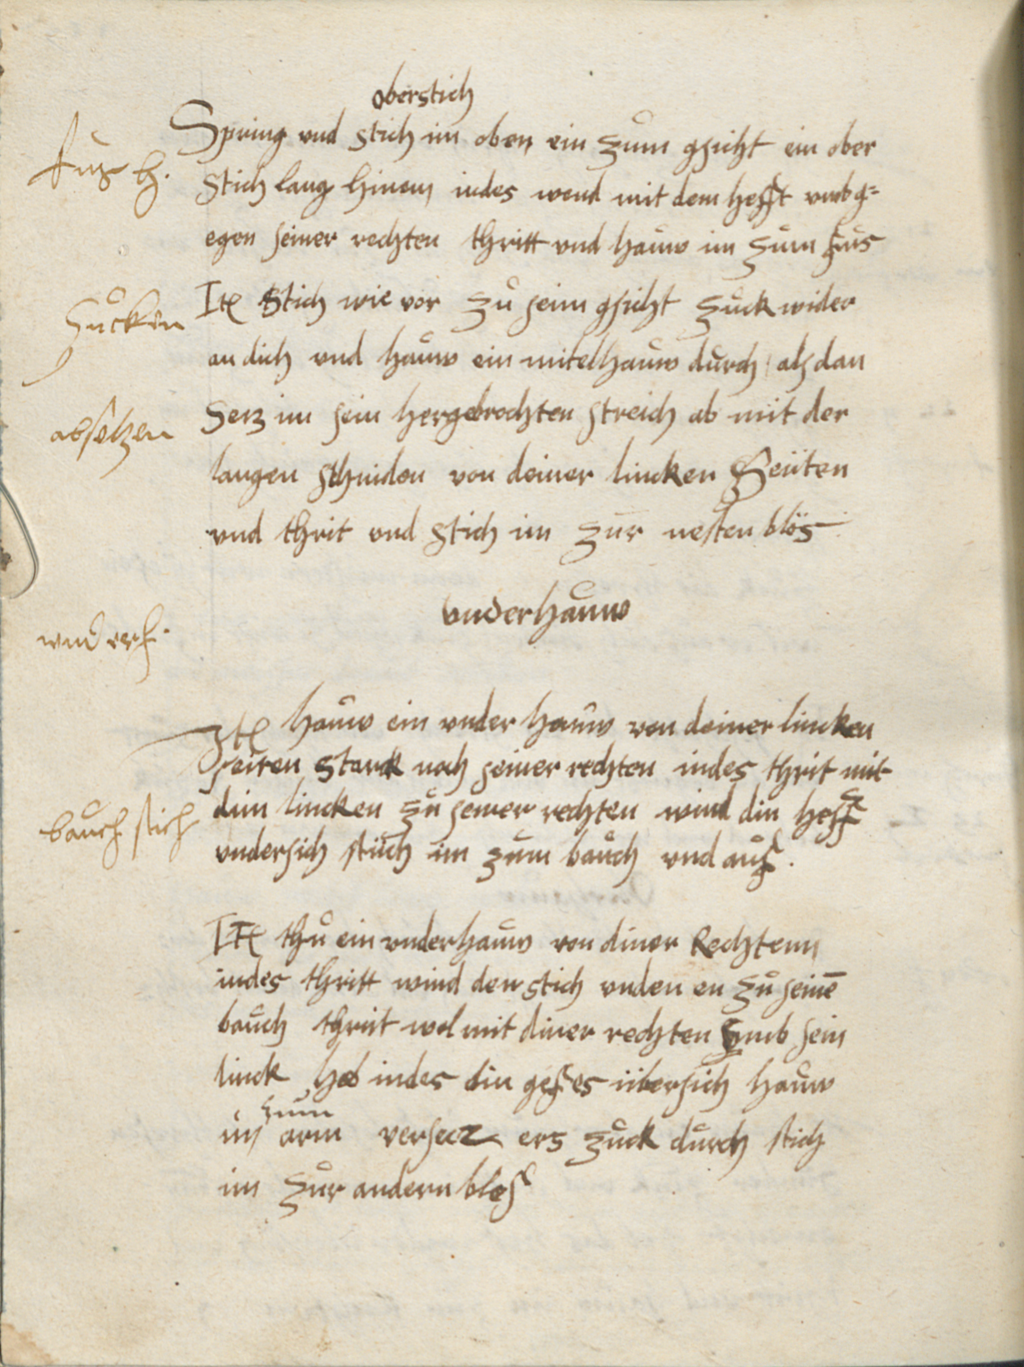 oberstich
Spring vnd stich im oben ein zům gsicht ein ober
fus h.
stich lang hinein indes wend mit dem hefft vmb g=
egen seiner rechten thritt vnd hauw im zum fůs
Itē stich wie vor zů seim gsicht zuck wider
zůcken
an dich vnd hauw ein mitelhauw durch als dan
Secz im sein hergebrochten streich ab mit der
absetzen
langen schniden von deiner lincken Seiiten
vnd thrit vnd stich im zur nesten blös
vnderhauw
wnd
Itē hauw ein vnder hauw von deiner lincken
seiten starck noch seiner rechten indes thrit mit
dim lincken zů seiner rechten wind din hefft
bauch stich
vndersich stich im zum bauch vnd auß.
Itē thů ein vnderhauw von diner Rechtenn
indes thritt wind den stich vnden en zů seinē
bauch thrit wol mit diner rechten vmb sein
linck heb indes din gefes übersich hauw
zum
im arm versecz ers zuck durch stich
im zur andern bloß